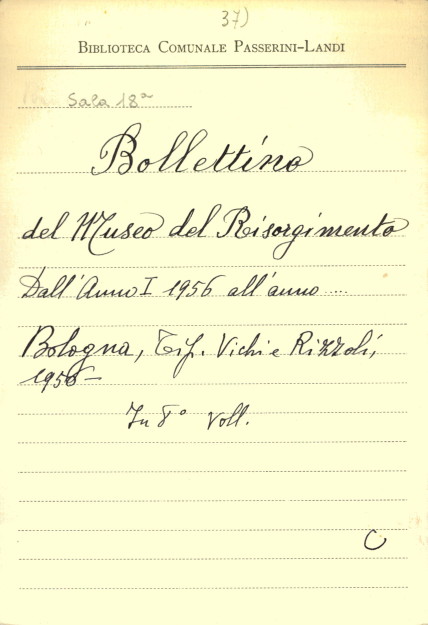 37)
BIBLIOTECA COMUNALE PASSERINI-LANDI
Sala 18ª
Bollettino
del Museo del Risorgimento
Dall'Anno I 1956 all'anno ....
Bologna, Tip. Vichi e Rizzoli,
1956-
In 8° Voll.
C